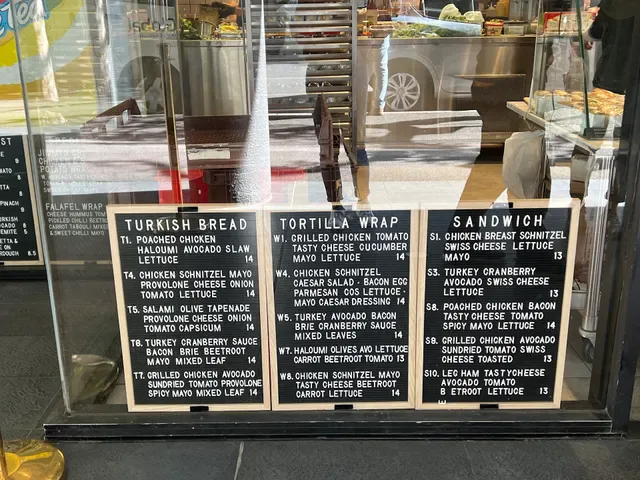 TURKISH BREAD
T1. POACHED CHICKEN
HALOUMI AVOCADO SLAW
LETTUCE 14
T4. CHICKEN SCHNITZEL MAYO
PROVOLONE CHEESE ONION
TOMATO LETTUCE 14
T5. SALAMI OLIVE TAPENADE
PROVOLONE CHEESE ONION
TOMATO CAPSICUM 14
T6. TURKEY CRANBERRY SAUCE
BACON BRIE BEETROOT
MAYO MIXED LEAF 14
T7. GRILLED CHICKEN AVOCADO
SUNDRIED TOMATO PROVOLONE
SPICY MAYO MIXED LEAF 14
TORTILLA WRAP
W1. GRILLED CHICKEN TOMATO
TASTY CHEESE CUCUMBER
MAYO LETTUCE 14
W4. CHICKEN SCHNITZEL
CAESAR SALAD - BACON EGG
PARMESAN COS LETTUCE -
MAYO CAESAR DRESSING 14
W5. TURKEY AVOCADO BACON
BRIE CRANBERRY SAUCE
MIXED LEAVES 14
W7. HALOUMI OLIVES AVO LETTUCE
CARROT BEETROOT TOMATO 13
W8. CHICKEN SCHNITZEL MAYO
TASTY CHEESE BEETROOT
CARROT LETTUCE 14
SANDWICH
S1. CHICKEN BREAST SCHNITZEL
SWISS CHEESE LETTUCE
MAYO 13
S3. TURKEY CRANBERRY
AVOCADO SWISS CHEESE
LETTUCE 13
S8. POACHED CHICKEN BACON
TASTY CHEESE TOMATO
SPICY MAYO LETTUCE 14
S9. GRILLED CHICKEN AVOCADO
SUNDRIED TOMATO SWISS
CHEESE TOASTED 13
S10. LEG HAM TASTYCHEESE
AVOCADO TOMATO
B ETROOT LETTUCE 13
FALAFEL WRAP
CHEESE HUMMUS
CARROT TABOULI
& SWEET CHILLI MAYO